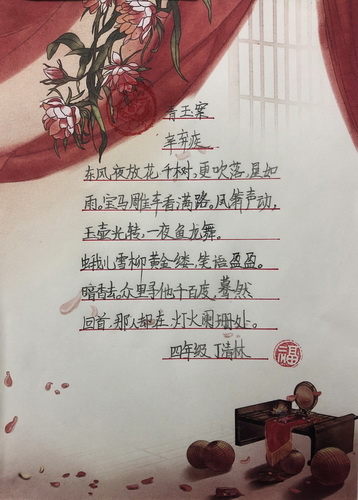 青玉案
辛弃疾
东风,夜放花千树,更吹落,星如
雨。宝马雕车香满路。凤箫声动,
玉壶光转,一夜鱼龙舞。
蛾儿雪柳黄金缕,笑语盈盈
暗香去。众里寻他千百度,蓦然
回首,那人却在,灯火阑珊处。
四年级 丁浩林
福